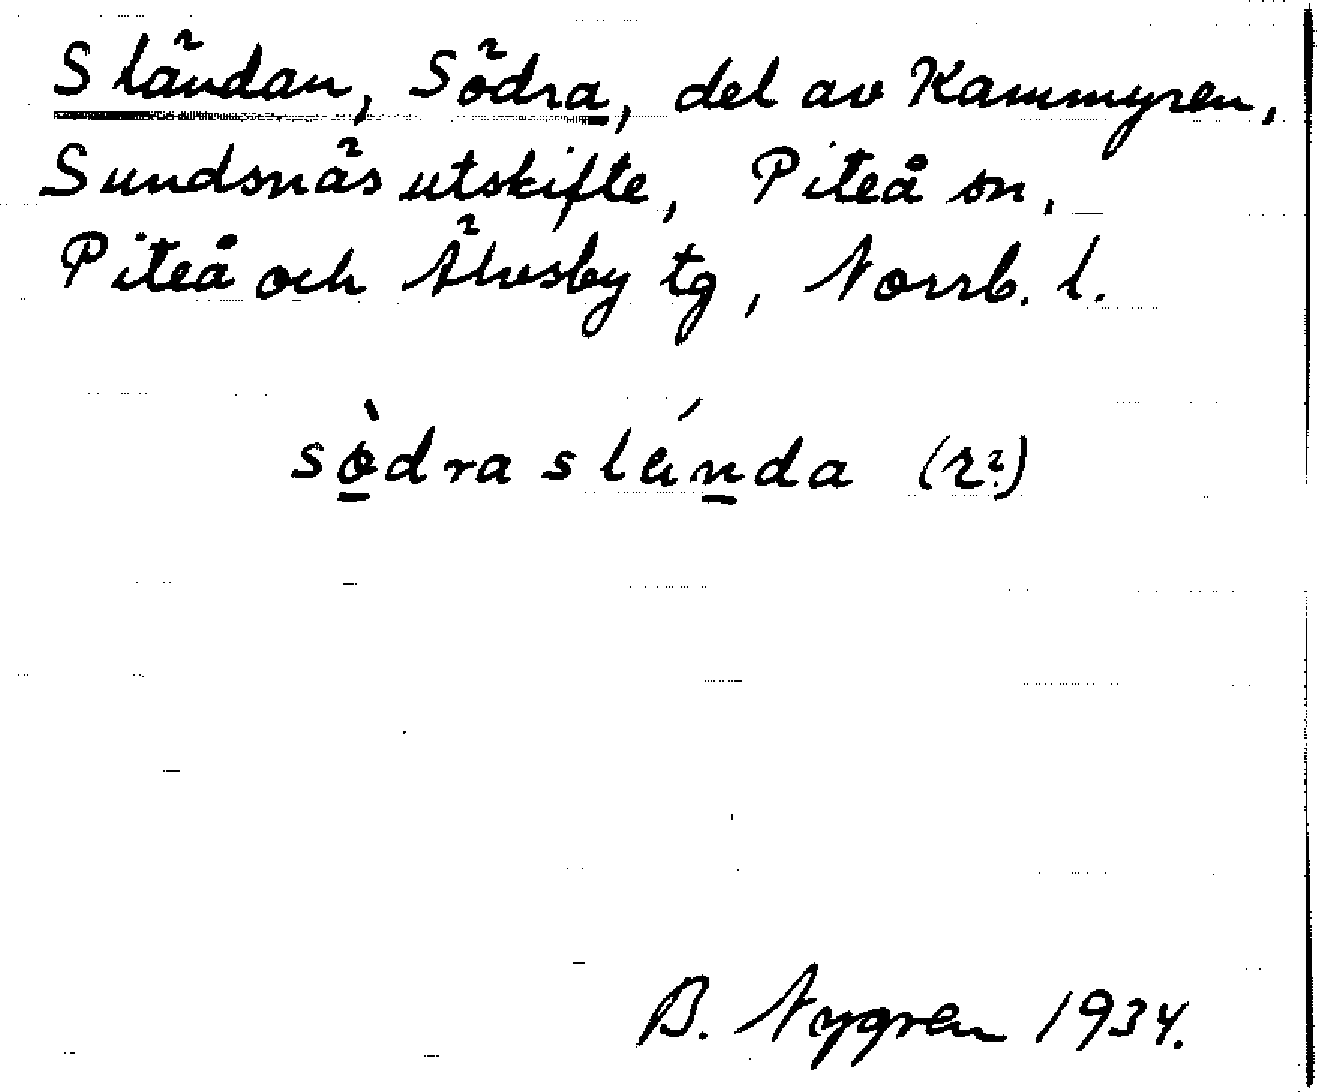 Sländan, Södra, del av Kammyren,
Sundsnäs utskifte, Piteå sn,
Piteå och Älvsby tg, Norrb. l.
sö̀dra slä́nda (r?)
B. Nygren 1934.